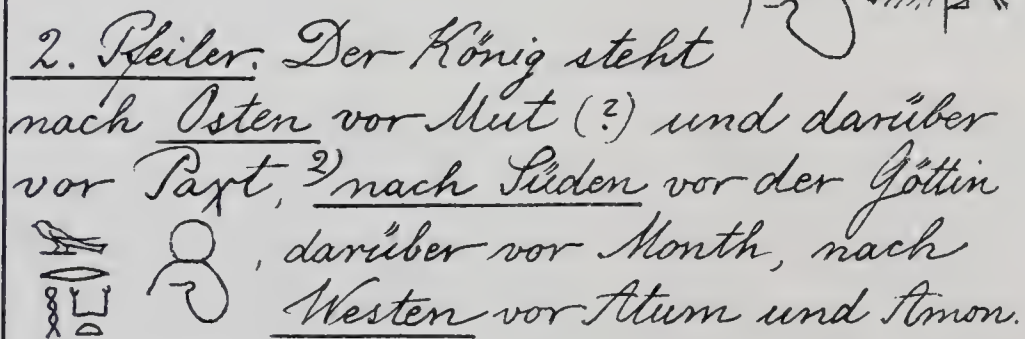 2. Pfeiler. Der König steht
nach Osten vor Mut (?) und darüber
vor Paχt, ²⁾ nach Süden vor der Göttin
𓅨𓂋𓎛𓂓𓏏, darüber vor Month, nach
Westen vor Atum und Amon.